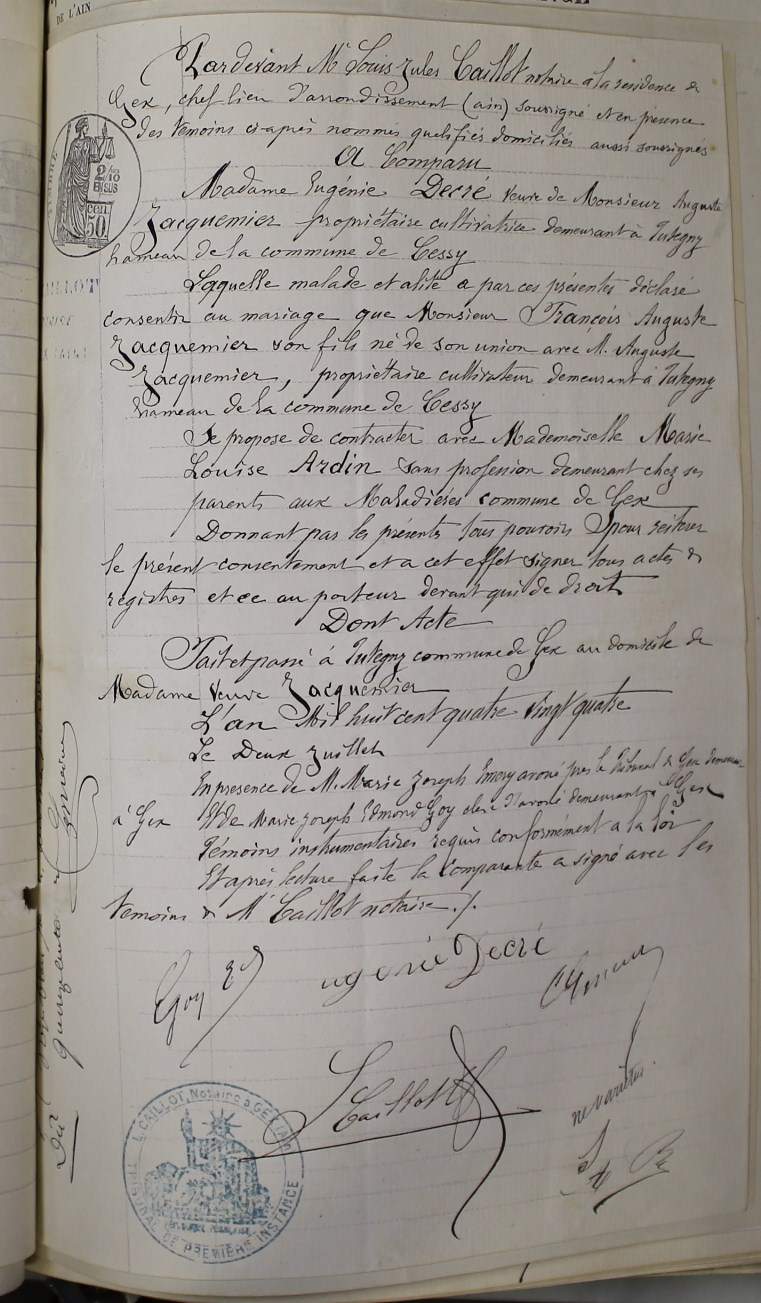 DE L'AIN
Pardevant Me Louis Jules Caillot notaire à la résidence de
Gex, chef lieu d'arrondissement (ain) soussigné et en présence
des témoins ci-après nommés qualifiés domiciliés aussi soussignés
A Comparu
Madame Eugénie Decré veuve de Monsieur Auguste
Jacquemier propriétaire cultivatrice demeurant à Tutegny
hameau de la commune de Cessy
Laquelle malade et alité a par ces présentes déclaré
consentir au mariage que Monsieur François Auguste
Jacquemier son fils né de son union avec M. Auguste
Jacquemier, propriétaire cultivateur demeurant à Tutegny
hameau de la commune de Cessy
Se propose de contracter avec Mademoiselle Marie
Louise Ardin sans profession demeurant chez ses
parents aux Maladières commune de Gex
Donnant par les présentes tous pouvoirs pour réiterer
le présent consentement et a cet effet signer tous actes &
registres et ce au porteur devant qui de droit
Dont Acte
Fait et passé à Tutegny commune de Gex au domicile de
Madame veuve Jacquemier
L'an Mil huit cent quatre vingt quatre
Le Deux Juillet
En présence de M. Marie Joseph Emery avoué près le Tribunal de Gex demeurant
à Gex Et de Marie Joseph Edmond Goy clerc d'avoué demeurant à Gex
Témoins instrumentaires requis conformément a la loi
Et après lecture faite la comparante a signé avec les
témoins & Me Caillot notaire ./.
Goy Ed
ugénie Decré
Caillot
ne varietur
2/10 EN SUS
CEN. 50
L. CAILLOT, Notaire à GEX (AIN)
TRIBUNAL DE PREMIERE INSTANCE